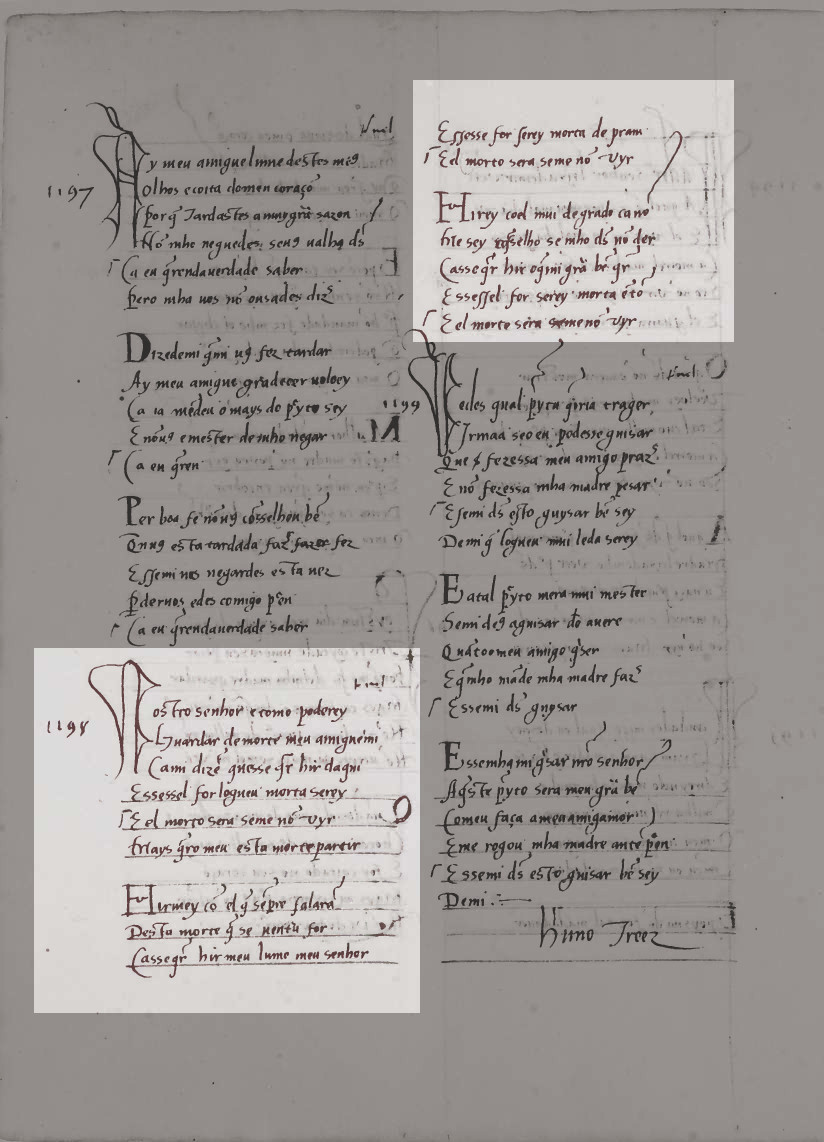 1197
Ay meu amigue lume destes meg
Olhos e coita do meu coraçõ
Por q̄ tardastes a muy grā sazon
Nō mho neguedes seug ualha ds̄
Ca eu q̄renda uerdade saber
Pero mha uos nō ousades diz̄
Dizedemi q̄ni ug fez tardar
Ay meu amigue gradecer uoloey
Ca ia meu o mays do p̄yto sey
E nōug e mester de mho negar
Ca eu q̄ren
Per boa fe nōug cōsselhou bē
Esseminos negardes esta uez
Ca eu q̄renda uerdade saber
1198
Nostro senhor e como poderey
Guardar de morte meu amiguemi
Cami dizē quesse q̄r hir daqui
Essessel for logueu morta serey
E el morto sera seme nō vyr
Mays q̄ro meu esta morte partir
Hirmey cō el q̄ sēpre falarā
Desta morte q̄ se uentu for
Casse q̄r hir meu lume meu senhor
Essesse for serey morta de pram
E el morto sera seme nō vyr
Hirey coel mui de grado ca nō
Mte sey cōsselho se mho ds̄ nō der
Casse q̄r hir o q̄mi grā bē q̄r
Essessel for serey morta ētō
E el morto sera seme nō vyr
1199
Vedes qual p̄yto q̄ria trager
Irmaa seo eu podesse guisar
Que fezessa meu amigo praz̄
E nō fezessa mha madre pesar
Esemi ds̄ esto guysar bē sey
De mi q̄ logueu mui leda serey
E a tal p̄yto mera mui mester
Semi deg aguisar do auere
Quāto o meu amigo q̄ser
E q̄ mho māde mha madre faz̄
Essemi ds̄ guysar
Essemha mi guisar nro senhor
Aq̄ste p̄yto sera meu grā bē
Comeu faça amea amigamor
Eme rogou mha madre ante p̄en
Essemi ds̄ esto guisar bē sey
Demi
Nuno Treez